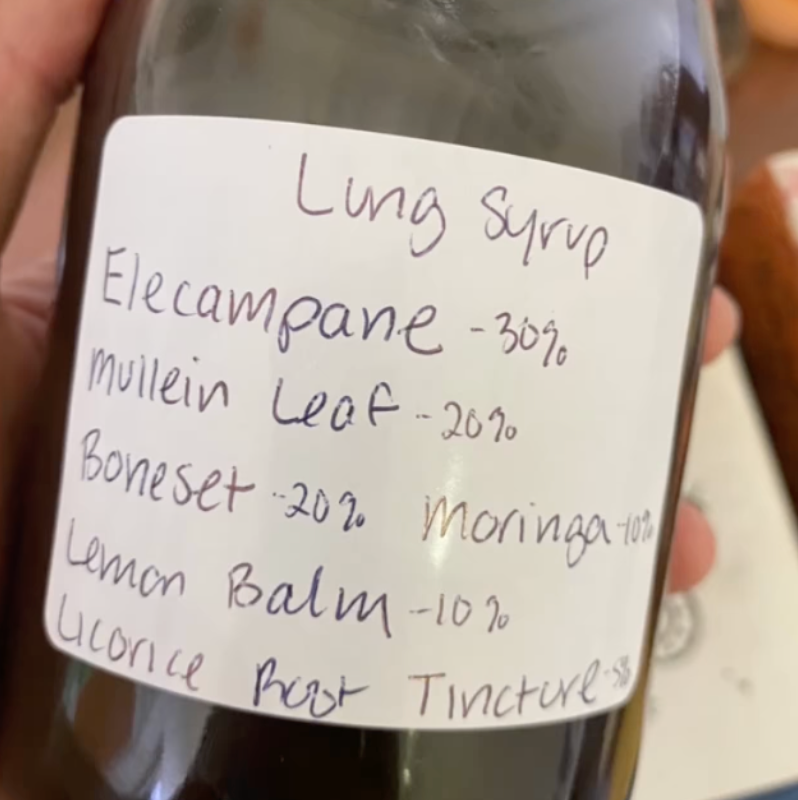 Lung Syrup
Elecampane - 30%
Mullein Leaf - 20%
Boneset - 20% Moringa - 10%
Lemon Balm - 10%
Licorice Root Tincture - 5%